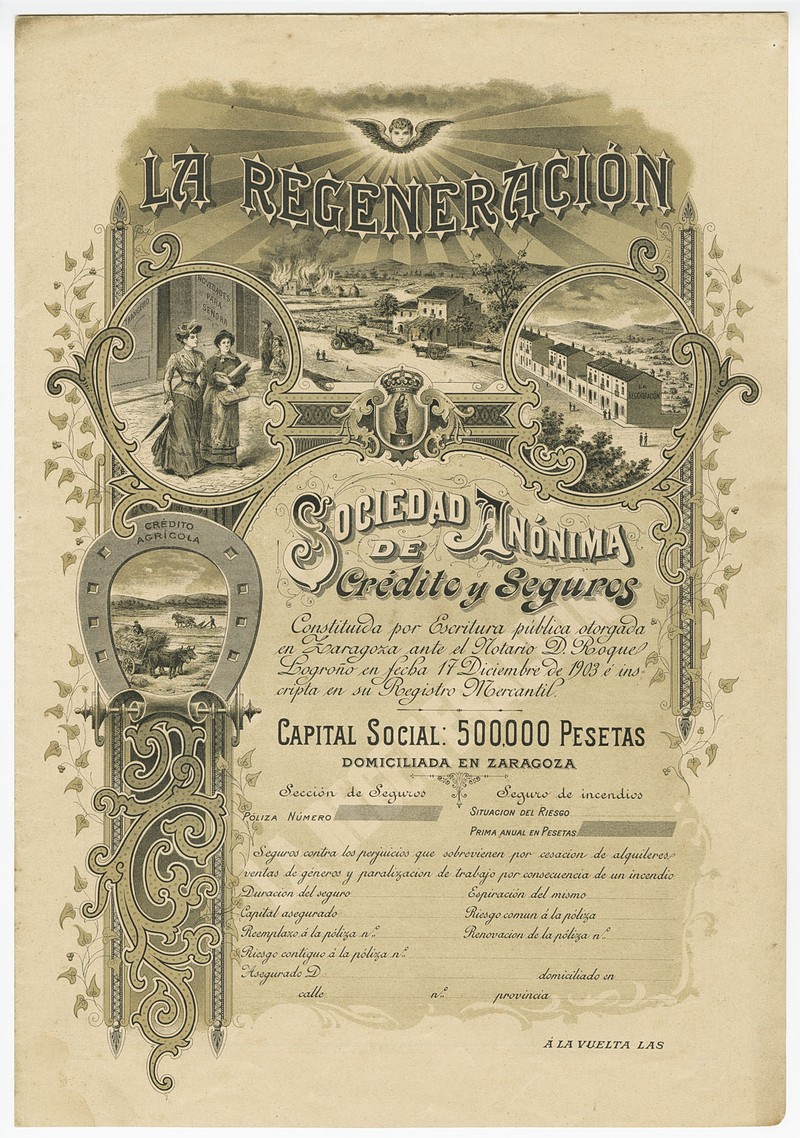 LA REGENERACIÓN
NOVEDADES
PARA
SEÑORA
LA
REGENERACIÓN
SOCIEDAD ANÓNIMA
DE
Crédito y Seguros
CRÉDITO
AGRÍCOLA
Constituida por Escritura pública otorgada
en Zaragoza ante el Notario D. Roque
Logroño en fecha 17 Diciembre de 1903 é ins-
cripta en su Registro Mercantil.
CAPITAL SOCIAL: 500,000 PESETAS
DOMICILIADA EN ZARAGOZA
Sección de Seguros Seguro de incendios
PÓLIZA NÚMERO
SITUACION DEL RIESGO
PRIMA ANUAL EN PESETAS
Seguros contra los perjuicios que sobrevienen por cesacion de alquileres,
ventas de géneros y paralizacion de trabajo por consecuencia de un incendio
Duracion del seguro Espiración del mismo
Capital asegurado Riesgo comun á la póliza
Reemplazo á la póliza n.º Renovacion de la póliza n.º
Riesgo contiguo á la póliza n.º
Asegurado D. domiciliado en
calle n.º provincia
Á LA VUELTA LAS